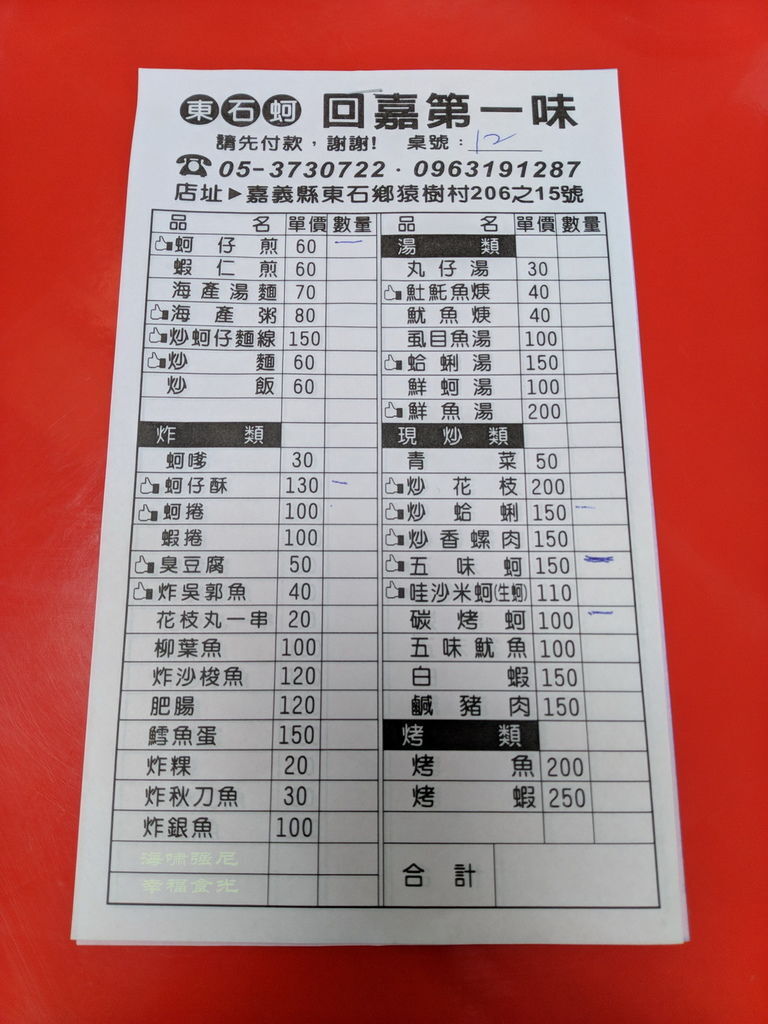 東石蚵 回嘉第一味
請先付款，謝謝! 桌號：12
☎05-3730722・0963191287
店址▶嘉義縣東石鄉猿樹村206之15號
品名 單價 數量
蚵仔煎 60 一
蝦仁煎 60
海產湯麵 70
海產粥 80
炒蚵仔麵線 150
炒麵 60
炒飯 60
炸類
蚵嗲 30
蚵仔酥 130 一
蚵捲 100
蝦捲 100
臭豆腐 50
炸吳郭魚 40
花枝丸一串 20
柳葉魚 100
炸沙梭魚 120
肥腸 120
鱈魚蛋 150
炸粿 20
炸秋刀魚 30
炸銀魚 100
海嘯強尼
幸福食光
品名 單價 數量
湯類
丸仔湯 30
𩵚魠魚焿 40
魷魚焿 40
虱目魚湯 100
蛤蜊湯 150
鮮蚵湯 100
鮮魚湯 200
現炒類
青菜 50
炒花枝 200
炒蛤蜊 150 一
炒香螺肉 150
五味蚵 150
哇沙米蚵(生蚵) 110
碳烤蚵 100 一
五味魷魚 100
白蝦 150
鹹豬肉 150
烤類
烤魚 200
烤蝦 250
合計